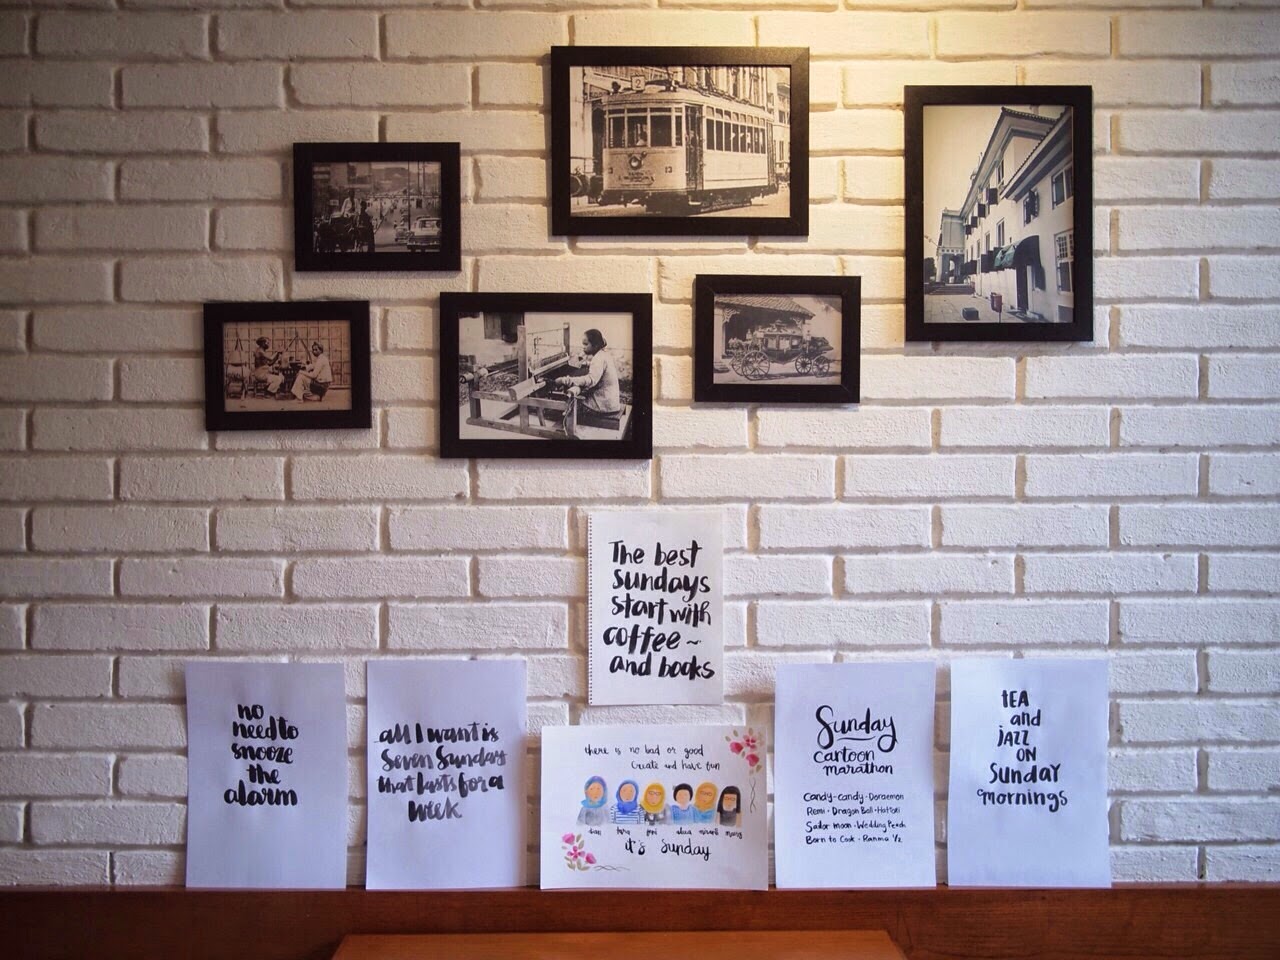 2
The best
sundays
start with
coffee ~
and books
no
need to
snooze
the
alarm
all I want is
Seven Sunday
that lasts for a
week
there is no bad or good
create and have fun
it's sunday
Sunday
cartoon
marathon
Candy-candy · Doraemon
Remi · Dragon Ball · Hattori
Sailor moon · Wedding Peach
Born to Cook · Ranma 1/2
tea
and
jazz
on
Sunday
mornings